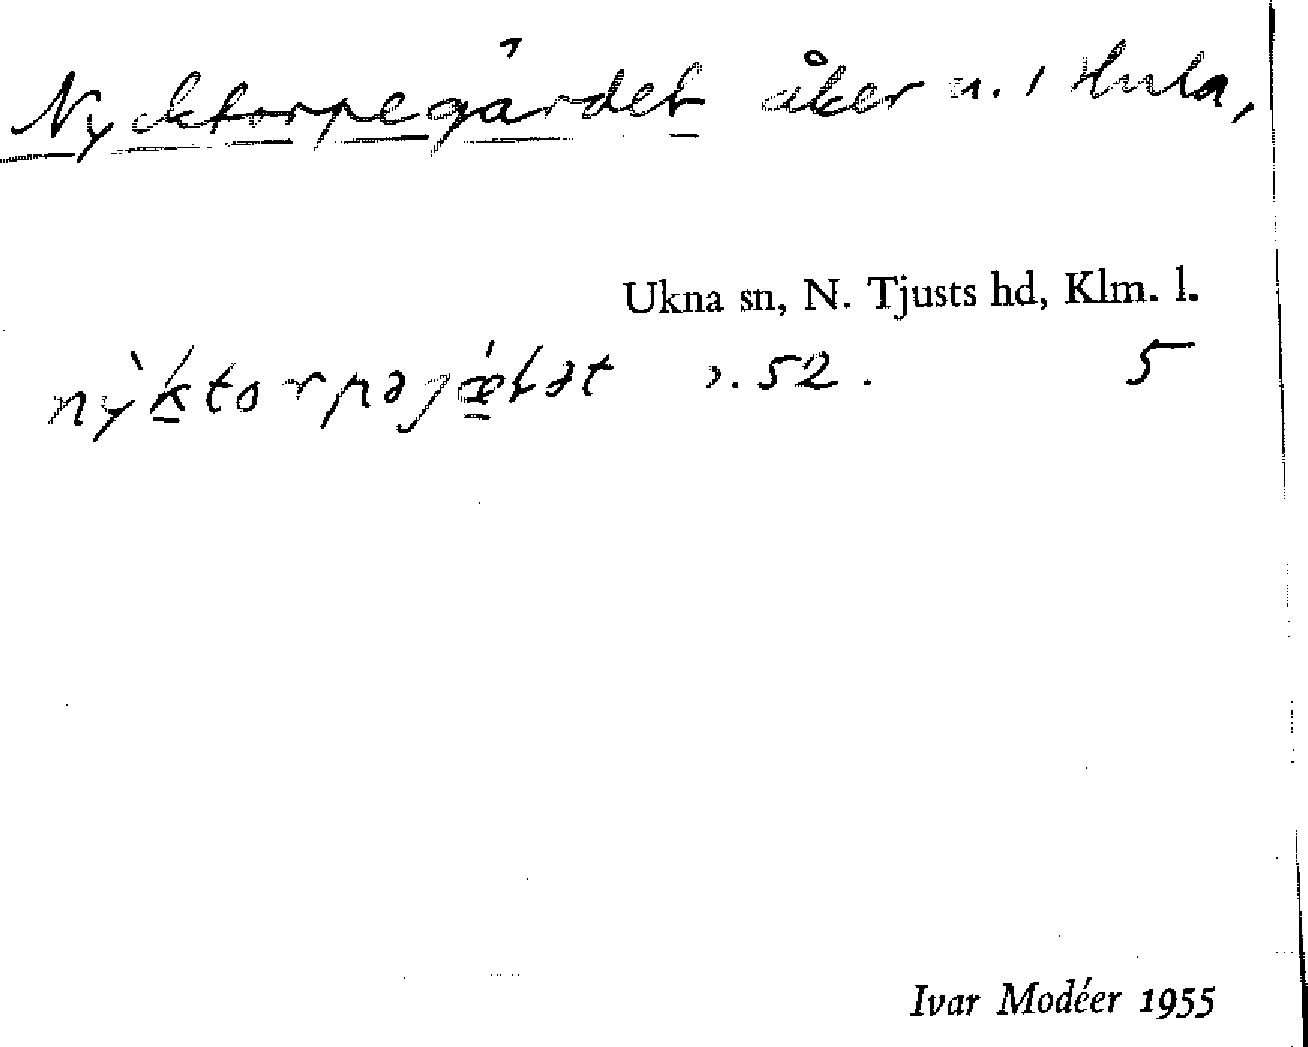 Nycktorpegärdet åker u. i Hula,
Ukna sn, N. Tjusts hd, Klm. l.
nỳktorpəjǽɫət s. 52. 5
Ivar Modéer 1955